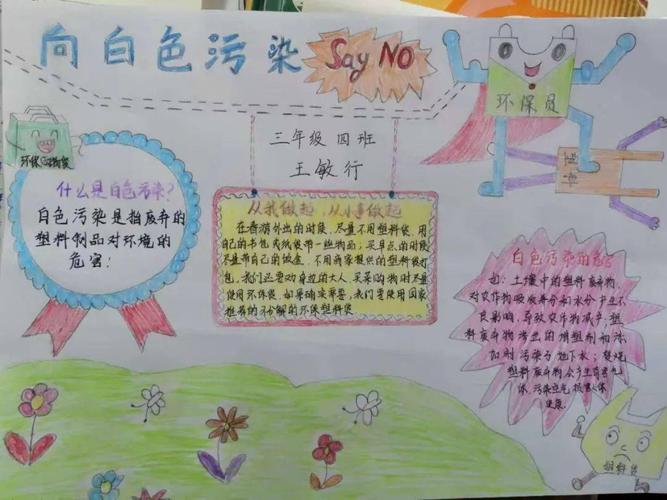 向白色污染 Say NO
环保员
塑料
环保购物袋
三年级 四班
王敏行
什么是白色污染?
白色污染是指废弃的
塑料制品对环境的
危害!
从我做起,从小事做起
在春游外出的时候,尽量不用塑料袋,用
自己的书包或纸袋带一些物品;买早点的时候
尽量带自己的饭盒,不用商家提供的塑料袋打
包,我们还要劝身边的大人,买菜购物时尽量
使用环保袋,如果确实需要,我们要使用国家
推荐的可分解的环保塑料袋
白色污染的危害
如:土壤中的塑料废弃物,
对农作物吸收养分和水分产生不
良影响,导致农作物减产;塑
料废弃物渗出的增塑剂和添
加剂污染了地下水;焚烧
塑料废弃物会产生有害气
体,污染空气,损害人体
健康.
塑料袋